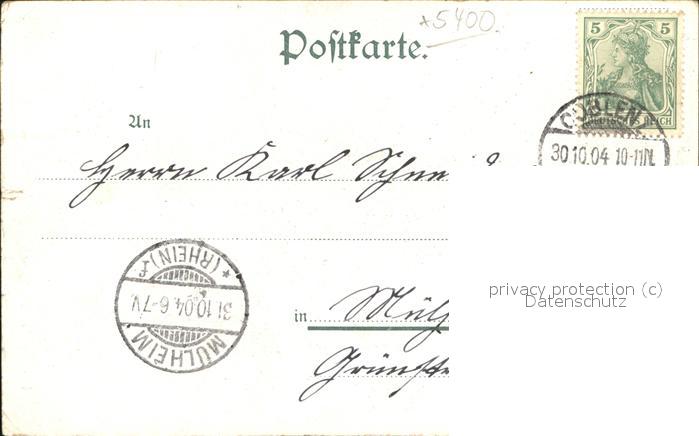 *5400.
Postkarte.
5 5
DEUTSCHES REICH
COBLENZ
30.10.04 10-11N.
An
Herrn Karl
privacy protection (c)
Datenschutz
* (RHEIN) f
31.10.04 6-7V.
MÜLHEIM
in